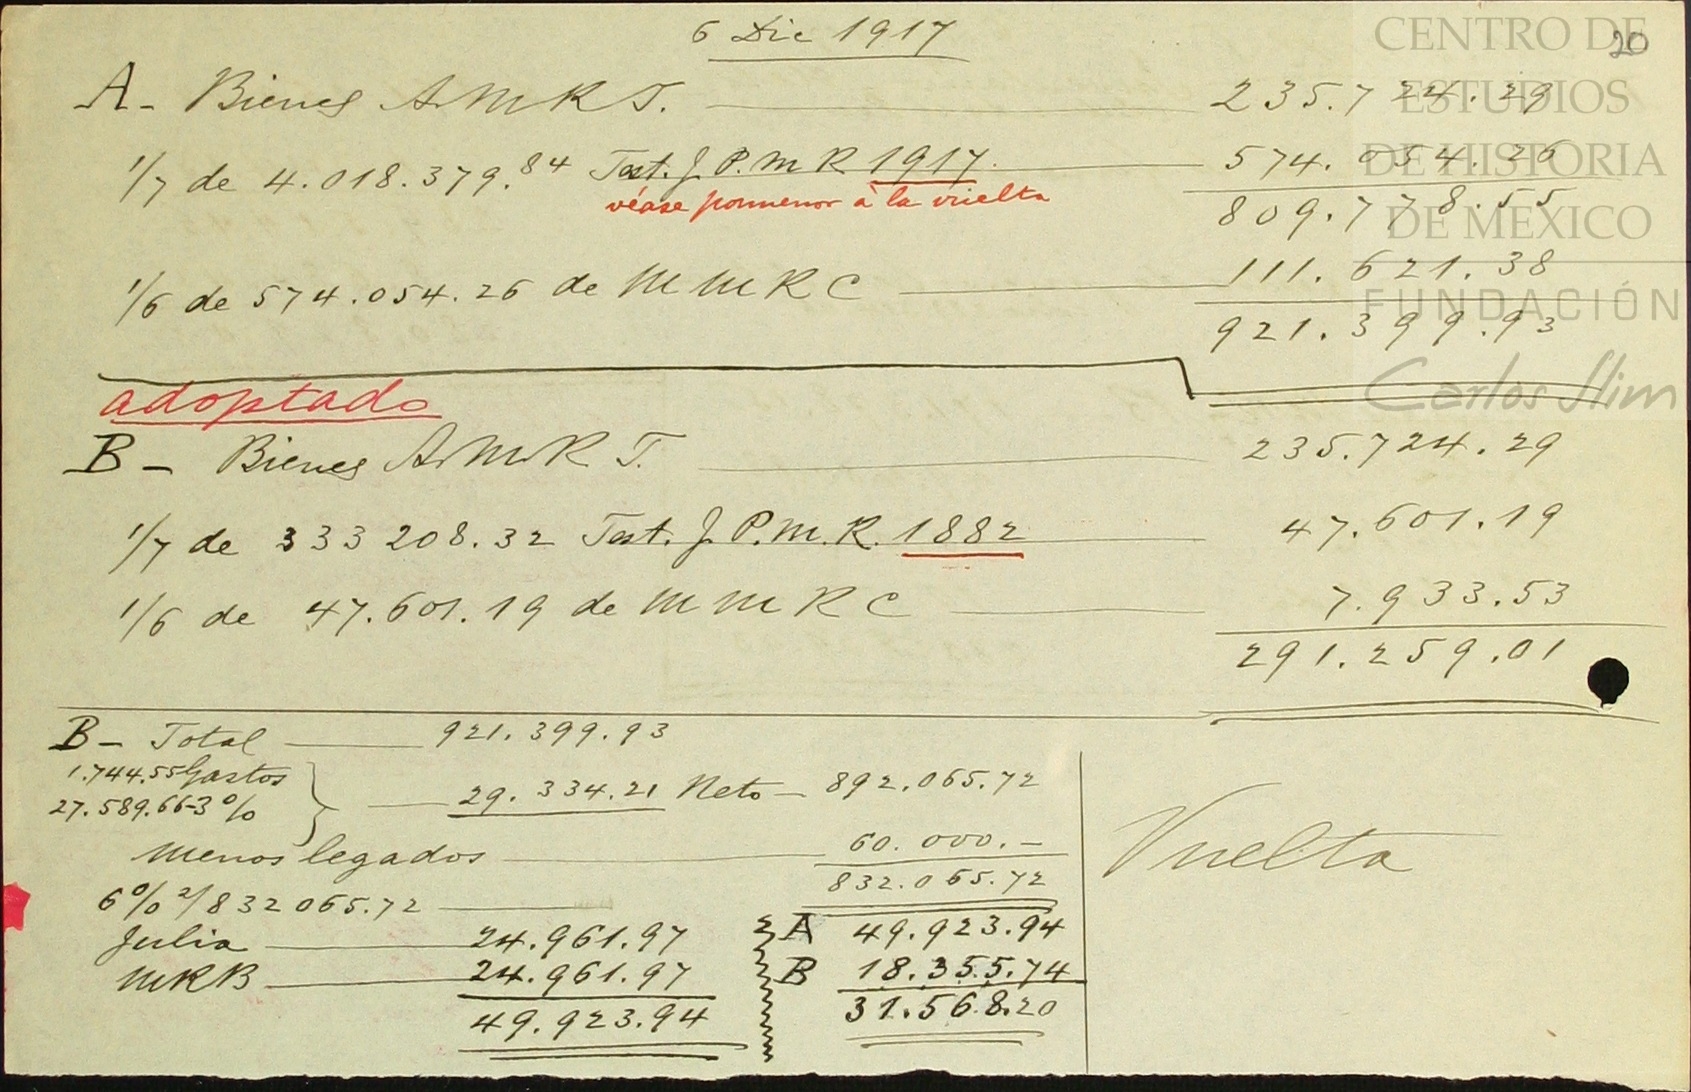 6 Dic 1917
20
A - Bienes A. M R T. 235.724.29
1/7 de 4.018.379.84 Test. J. P. M R 1917. 574.054.26
véase pormenor à la vuelta
809.778.55
1/6 de 574.054.26 de M M R C 111.621.38
921.399.93
adoptado
B - Bienes A. M R T. 235.724.29
1/7 de 333 208.32 Test. J. P. M. R. 1882 47.601.19
1/6 de 47.601.19 de M M R C 7.933.53
291.259.01
B - Total 921.399.93
1.744.55 Gastos
27.589.66-3% } 29.334.21 Neto - 892.065.72
menos legados 60.000.-
832.065.72
6% s/ 832 065.72
Julia 24.961.97 A 49.923.94
MRB 24.961.97 B 18.355.74
49.923.94 31.568.20
Vuelta
CENTRO DE
ESTUDIOS
DE HISTORIA
DE MÉXICO
FUNDACIÓN
Carlos Slim